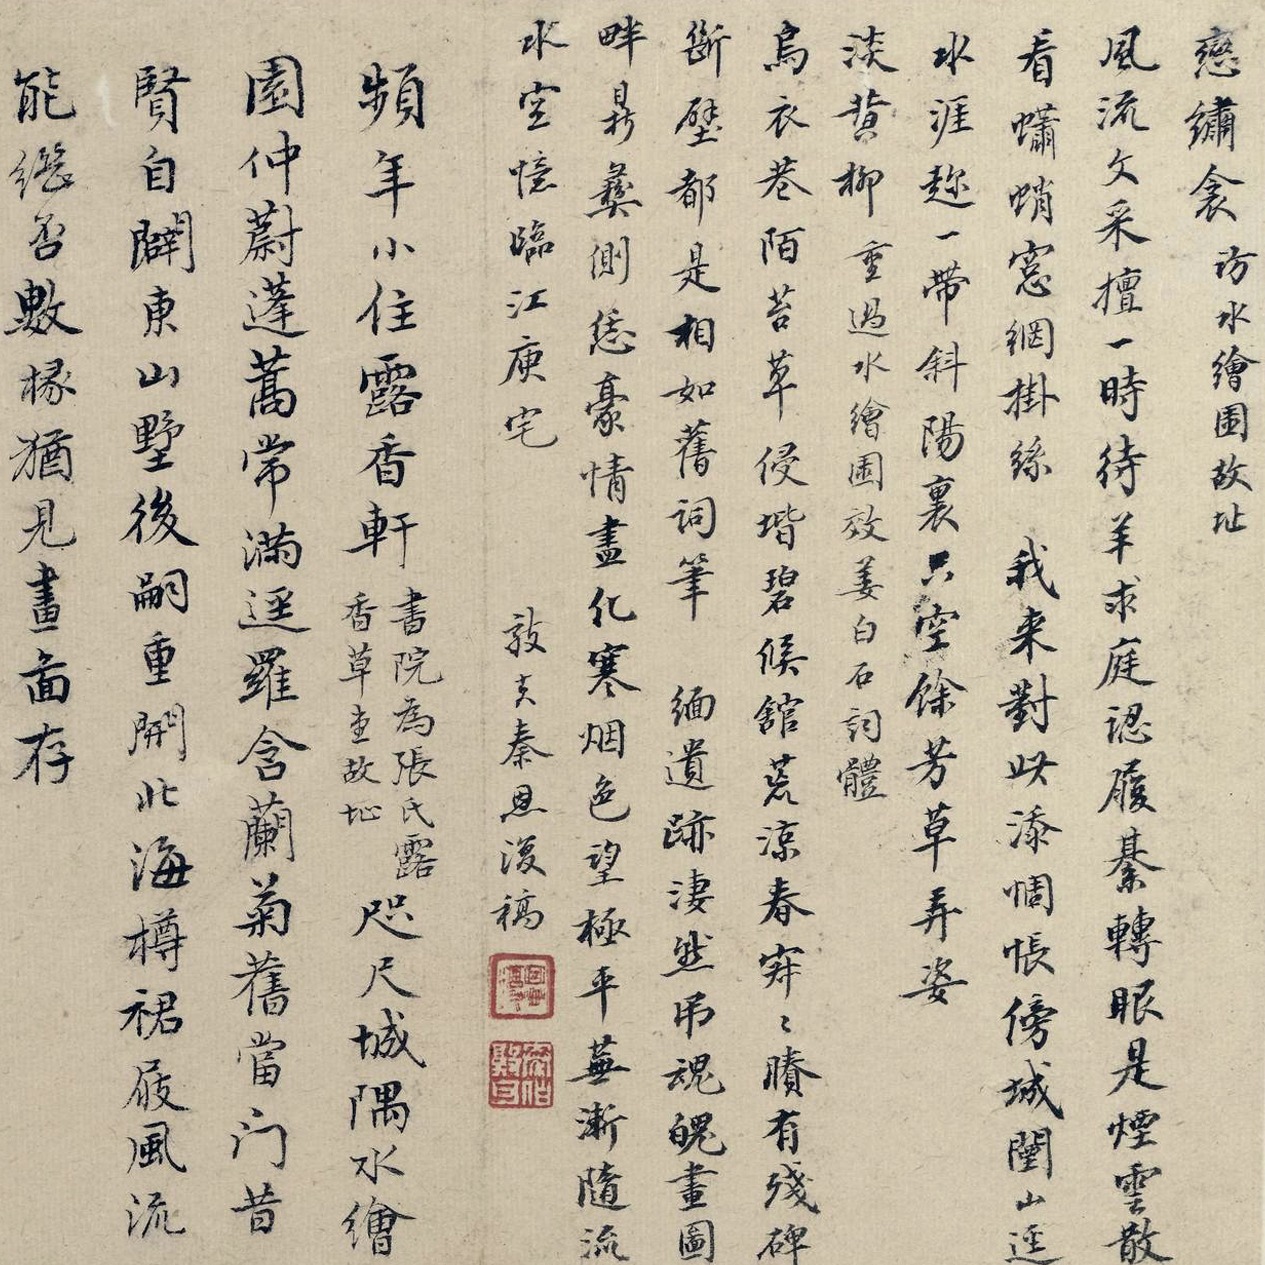 戀繡衾 訪水繪園故址
風流文采擅一時待羊求庭認履綦轉眼是煙雲散
看蠨蛸窓網掛絲 我来對此添惆悵傍城闉山逕
水涯趂一帶斜陽裏只空餘芳草弄姿
淡黄柳 重過水繪園效姜白石詞體
烏衣巷陌苔草侵堦碧候舘荒涼春寂〻賸有殘碑
斷壁都是相如舊詞筆 緬遺跡淒然弔魂魄畫圖
畔鼎彝側恁豪情盡化寒烟色望極平蕪漸隨流
水空憶臨江庚宅
敦夫秦恩復稿
頻年小住露香軒 書院為張氏露香草堂故址 咫尺城隅水繪
園仲蔚蓬蒿常滿逕羅含蘭菊舊當门昔
賢自闢東山墅後嗣重開北海樽裙屐風流
能繼否數椽猶見畫面存